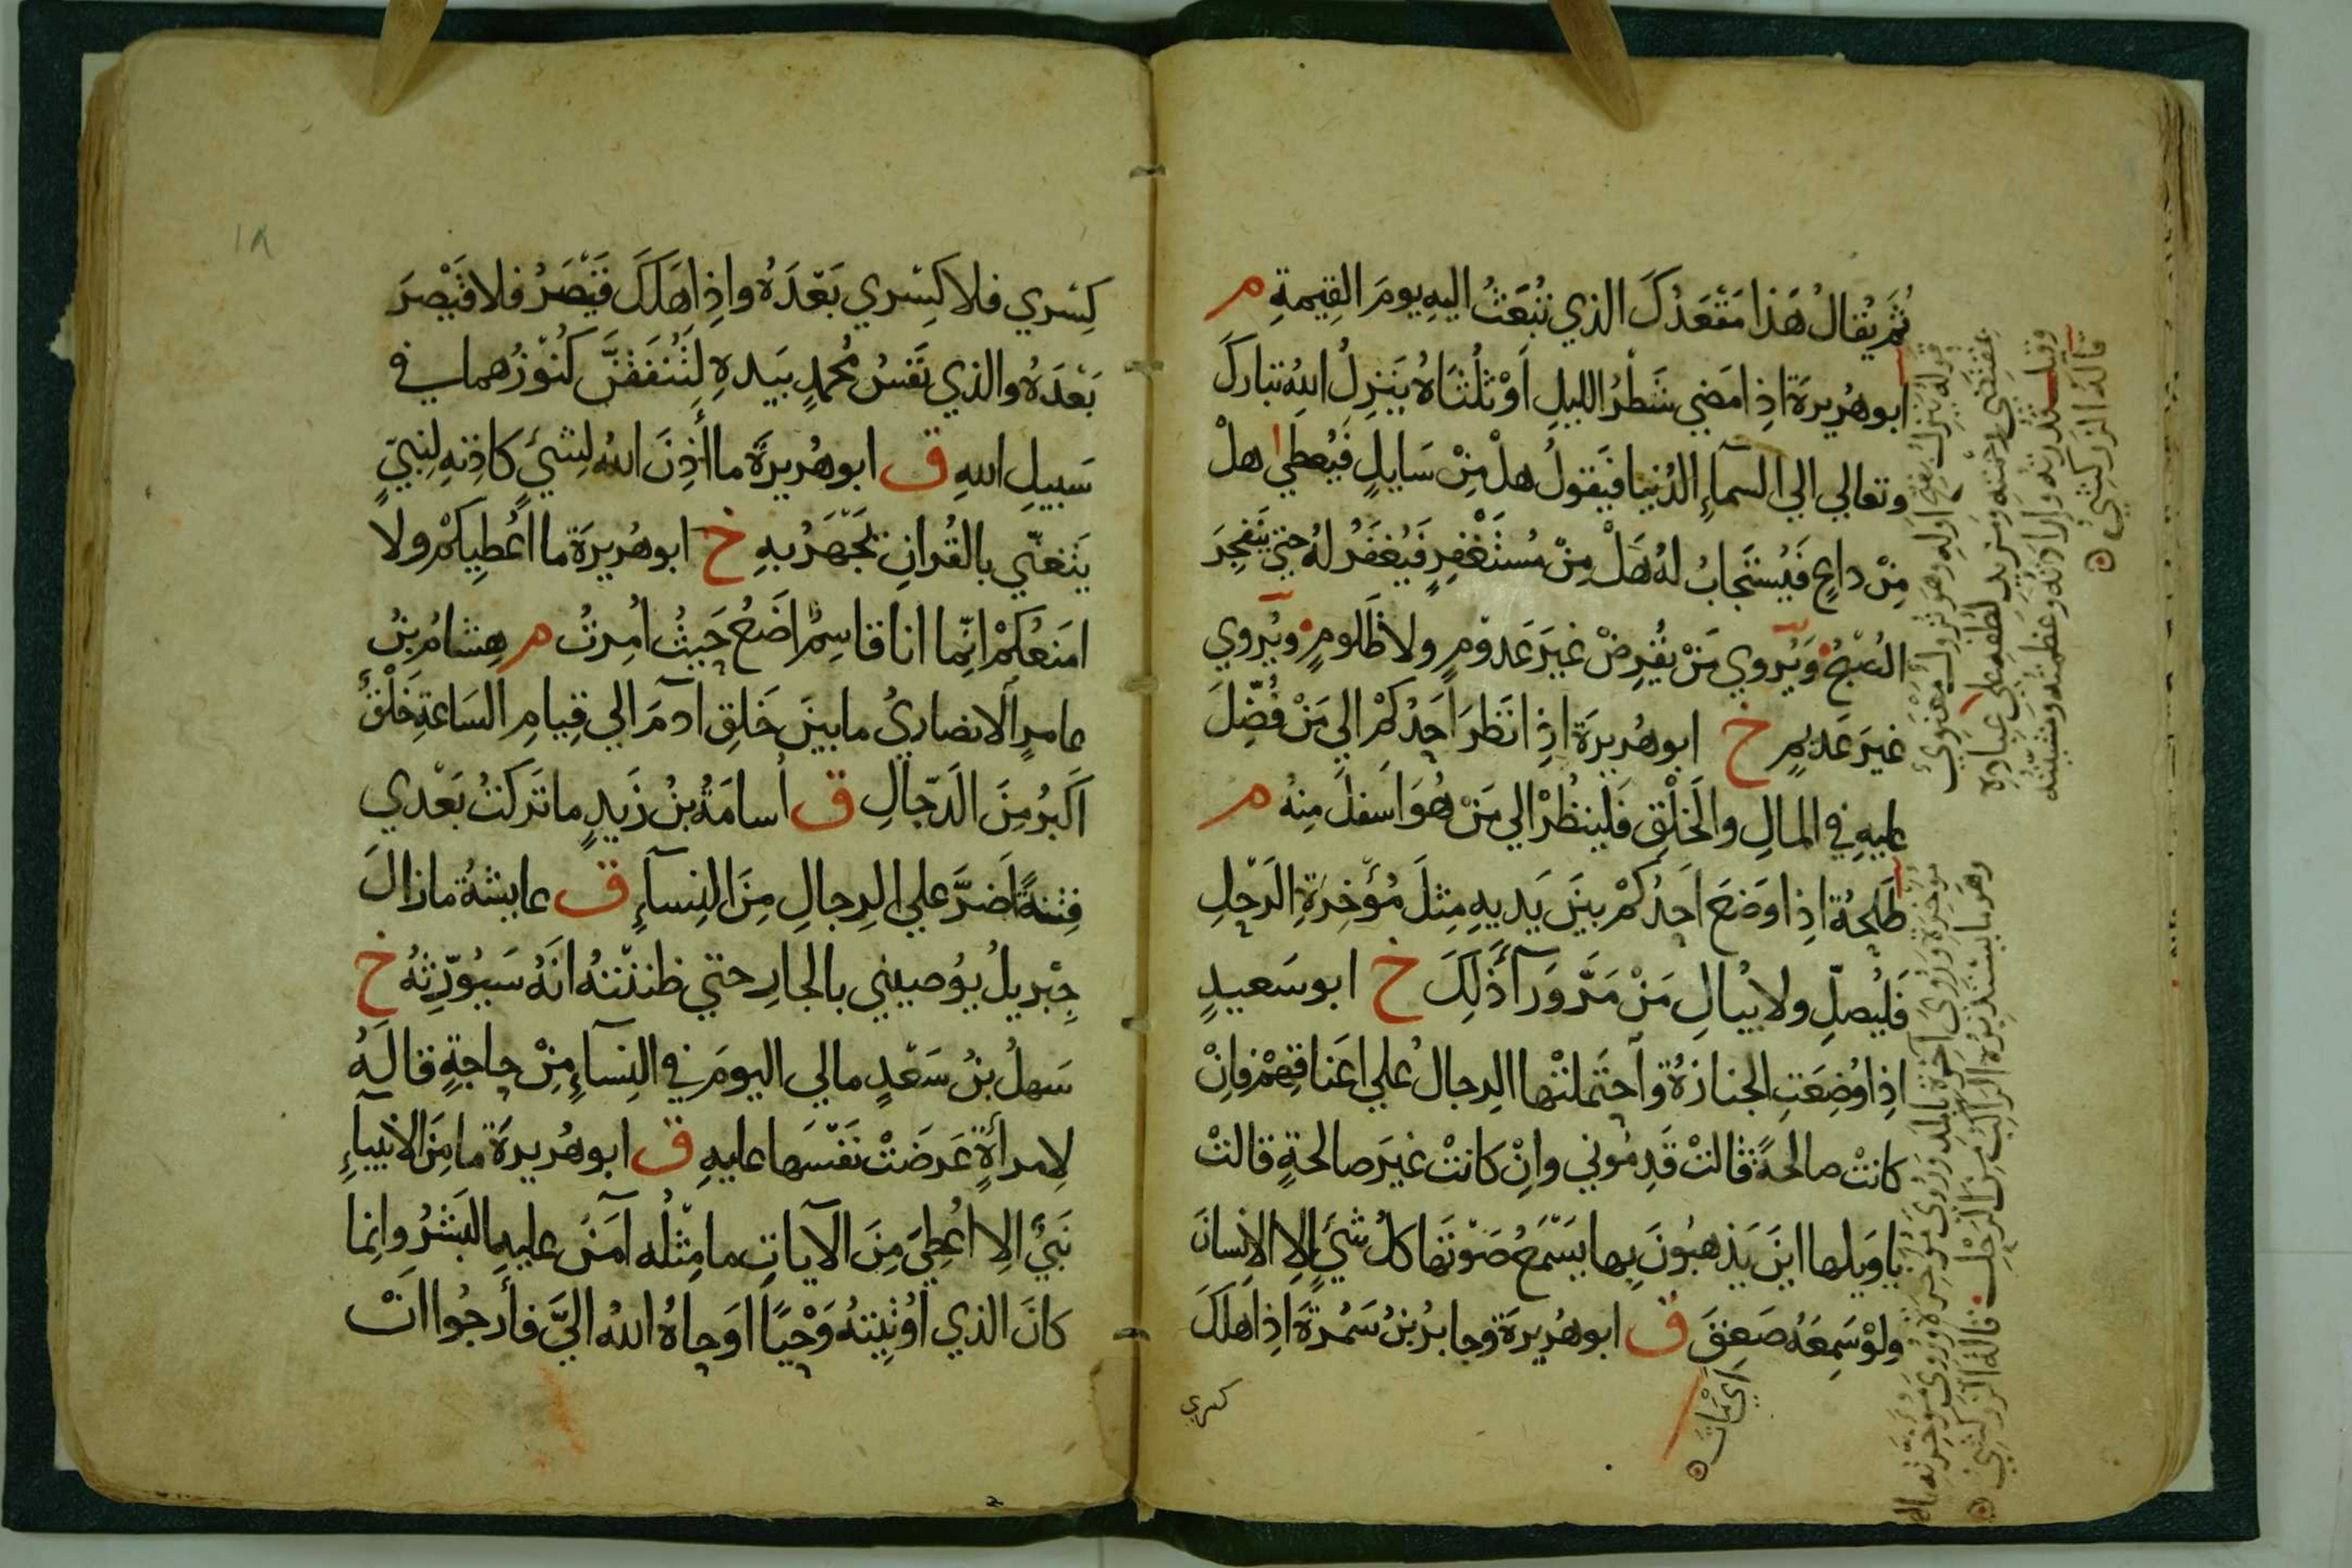 ثُمَّ يُقَالُ هَذَا مَقْعَدُكَ الذي تُبْعَثُ اليهِ يومَ القِيمةِ م
ابو هُرِيرَةَ اذِا مَضي شَطْرُ الليلِ اَوْ ثُلُثَاهُ يَنزِلُ اللهُ تبارَكَ
وتعالي الي السمآءِ الدُنيا فَيَقولُ هلْ مِنْ سَايلٍ فَيُعطي هلْ
مِنْ داعٍ فَيُستَجابُ لهُ هَلْ مِنْ مُستَغْفِرٍ فَيُغفَرُ لهُ حتي يَنفجِرَ
الصُبحُ وَيُروي مَنْ يُقرِضْ غيرَ عَدومٍ ولا ظَلومٍ ويُروي
غيرَ عَديمٍ خ ابو هُرِيرَةَ اذِا نَظرَ اَحَدُكمْ الي مَنْ فُضِّلَ
عليهِ في المالِ والخَلْقِ فَليَنظُرْ الي مَنْ هُوَ اَسفلَ مِنهُ م
طَلحَةُ اذِا وَضعَ اَحدُكمْ بينَ يَديهِ مِثلَ مُؤَخِرَةِ الرَحْلِ
فَليُصلِّ ولا يُبالِ مَنْ مَرَّ وَرَآءَ ذَلِكَ خ ابو سَعيدٍ
اذِا وُضِعَتِ الجنازَةُ وَاحتَملتْها الرِجالُ علي اعَناقِهمْ فاِنْ
كانتْ صالحةً قالتْ قَدِمُوني وانِْ كانتْ غيَرَ صالحةٍ قالتْ
يا وَيلها اينَ يَذهبُونَ بِها يَسْمَعُ صَوْتَها كلُ شيَءٍ اِلا الاِنسانَ
ولوْ سَمِعَهُ صَعِقَ ق ابو هُرِيرةَ وجابرُ بنُ سَمُرةَ اذِا هَلكَ
اي مَاتَ
كسري
قولهُ يَنزلُ بفتح اوله وهو نزولٌ معنويٌ
وقيل
قالهُ الزركشيُ
قاله الزركشي
كِسْري فلا كِسْري بَعْدَهُ واذِا هَلكَ قَيْصَرُ فلا قَيْصرَ
بَعْدَهُ والذي نَفسُ مُحمدٍ بيَدهِ لتُنفَقَنَّ كُنُوْزُهما في
سَبيلِ اللهِ ق ابو هُرِيرةَ ما أَذِنَ اللهُ لشَيءٍ كاَذِنهِ لِنبيٍّ
يَتَغنّي بالقُرانِ يَجْهَرُ بهِ خ ابو هُرِيرَةَ ما اُعْطِيكمْ ولا
امَنعُكمْ انِّما انا قاسِمٌ اَضَعُ حَيثُ اُمِرتُ م هِشامُ بنُ
عامرٍ الاَنصاريُ ما بينَ خَلقِ آدمَ الي قِيامِ السَاعةِ خَلْقٌ
اَكبَرُ مِنَ الَدّجالِ ق اُسامَةُ بنُ زَيدٍ ما تَركتُ بَعْدي
فِتنةً اَضرَّ علي الرِجالِ مِنَ النِسآءِ ق عايشةُ ما زالَ
جِبْريلُ يوُصِيني بالجارِ حتي ظننْتُهُ انَهُ سَيُورِّثهُ خ
سَهلُ بنُ سَعْدٍ مالي اليومَ في النِسآءِ مِنْ حاجةٍ قالهُ
لامِرأَةٍ عَرضَتْ نفْسَها عليهِ ق ابو هُرِيرةَ ما مِنَ الاَنبيآءِ
نَبيٌ الِا اُعْطِيَ مِنَ الآياتِ ما مِثْلُه آمَنَ عليهِ البَشَرُ وانِما
كانَ الذي اُوْتِيتهُ وَحْيًا اَوحاهُ اللهُ اليَّ فأَرجُوا اَنْ
١٨